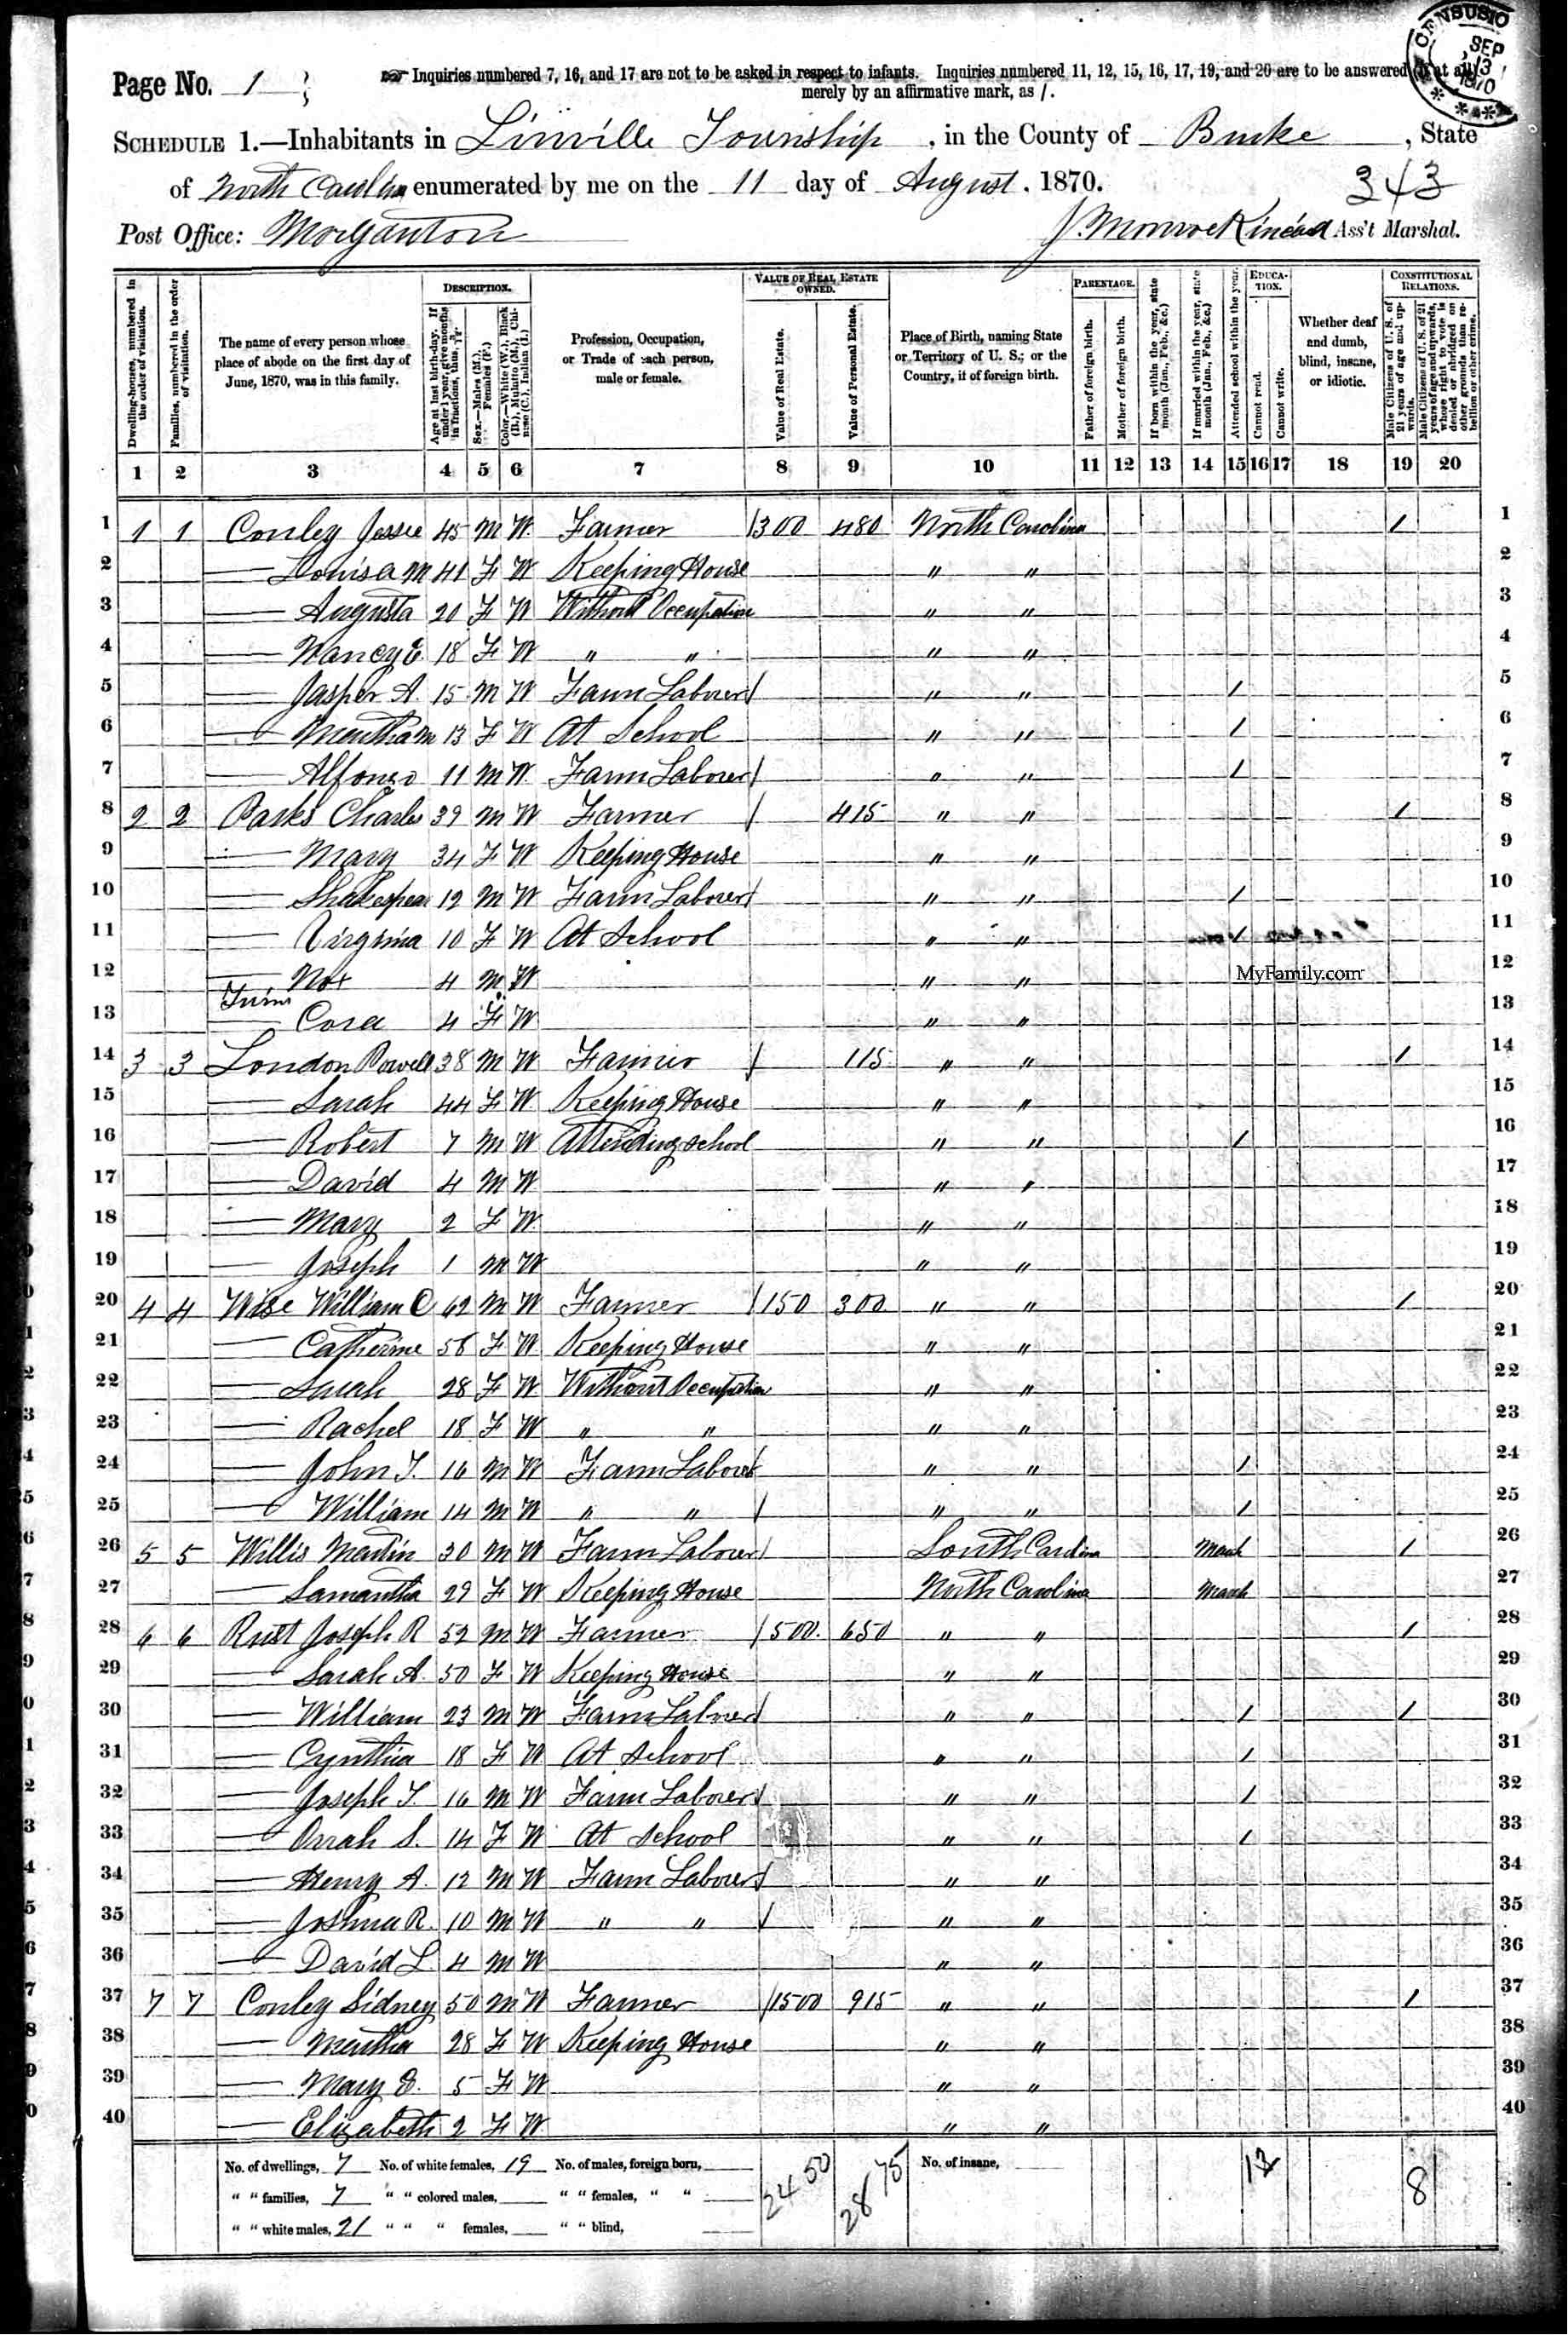 CENSUS
SEP
13
1870
Page No. 1
Inquiries numbered 7, 16, and 17 are not to be asked in respect to infants. Inquiries numbered 11, 12, 15, 16, 17, 19, and 20 are to be answered (if at all)
merely by an affirmative mark, as /.
SCHEDULE 1.—Inhabitants in Linville Township, in the County of Burke, State
of North Carolina enumerated by me on the 11 day of August, 1870.
343
Post Office: Morganton J. Monroe Kincaid Ass't Marshal.
Dwelling-houses, numbered in the order of visitation.
Families, numbered in the order of visitation.
The name of every person whose place of abode on the first day of June, 1870, was in this family.
DESCRIPTION.
Age at last birth-day. If under 1 year, give months in fractions, thus,
Sex.—Males (M.), Females (F.)
Color.—White (W.), Black (B.), Mulatto (M.), Chinese (C.), Indian (I.)
Profession, Occupation, or Trade of each person, male or female.
VALUE OF REAL ESTATE OWNED.
Value of Real Estate.
Value of Personal Estate.
Place of Birth, naming State or Territory of U. S.; or the Country, if of foreign birth.
PARENTAGE.
Father of foreign birth.
Mother of foreign birth.
If born within the year, state month (Jan., Feb., &c.)
If married within the year, state month (Jan., Feb., &c.)
EDUCATION.
Attended school within the year.
Cannot read.
Cannot write.
Whether deaf and dumb, blind, insane, or idiotic.
CONSTITUTIONAL RELATIONS.
Male Citizens of U. S. of 21 years of age and upwards.
Male Citizens of U. S. of 21 years of age and upwards, whose right to vote is denied or abridged on other grounds than rebellion or other crime.
1 2 3 4 5 6 7 8 9 10 11 12 13 14 15 16 17 18 19 20
1 1 1 Conley Jesse 45 M W. Farmer / 300 480 North Carolina / 1
2 — Louisa M 41 F W Keeping House " " 2
3 — Augusta 20 F W Without Occupation " " 3
4 — Nancy E. 18 F W " " " " 4
5 — Jasper A. 15 M W Farm Laborer / " " / 5
6 — M 13 F W At School " " / 6
7 — Alfonso 11 M W Farm Laborer / " " / 7
8 2 2 Parks Charles 39 M W Farmer / 415 " " / 8
9 — Mary 34 F W Keeping House " " 9
10 — Shakespear 12 M W Farm Laborer / " " / 10
11 — Virginia 10 F W At School " " / 11
12 — 4 M W " " MyFamily.com 12
Twins
13 — Cora 4 F W " " 13
14 3 3 London Powell 38 M W Farmer / 115 " " / 14
15 — Sarah 44 F W Keeping House " " 15
16 — Robert 7 M W Attending school " " / 16
17 — David 4 M W " " 17
18 — Mary 2 F W " " 18
19 — Joseph 1 M W " " 19
20 4 4 Wise William C 62 M W Farmer / 150 300 " " / 20
21 — Catherine 58 F W Keeping House " " 21
22 — Sarah 28 F W Without Occupation " " 22
23 — Rachel 18 F W " " " " 23
24 — John T. 16 M W Farm Laborer " " / 24
25 — William 14 M W " " / " " / 25
26 5 5 Willis Martin 30 M W Farm Laborer / South Carolina March / 26
27 — Samantha 29 F W Keeping House North Carolina March 27
28 6 6 Rust Joseph R 52 M W Farmer / 500. 650 " " / 28
29 — Sarah A. 50 F W Keeping House " " 29
30 — William 23 M W Farm Laborer / " " / / 30
31 — Cynthia 18 F W At School " " / 31
32 — Joseph T. 16 M W Farm Laborer / " " / 32
33 — Orrah S. 14 F W At School " " / 33
34 — Henry A. 12 M W Farm Laborer / " " 34
35 — Joshua R. 10 M W " " / " " 35
36 — David L 4 M W " " 36
37 7 7 Conley Sidney 50 M W Farmer / 1500 915 " " / 37
38 — Martha 28 F W Keeping House " " 38
39 — Mary 5 F W " " 39
40 — Elizabeth 2 F W " " 40
No. of dwellings, 7 No. of white females, 19 No. of males, foreign born, 2450 2875 No. of insane, 12 8
" " families, 7 " " colored males, " " females, " "
" " white males, 21 " " " females, " " blind,